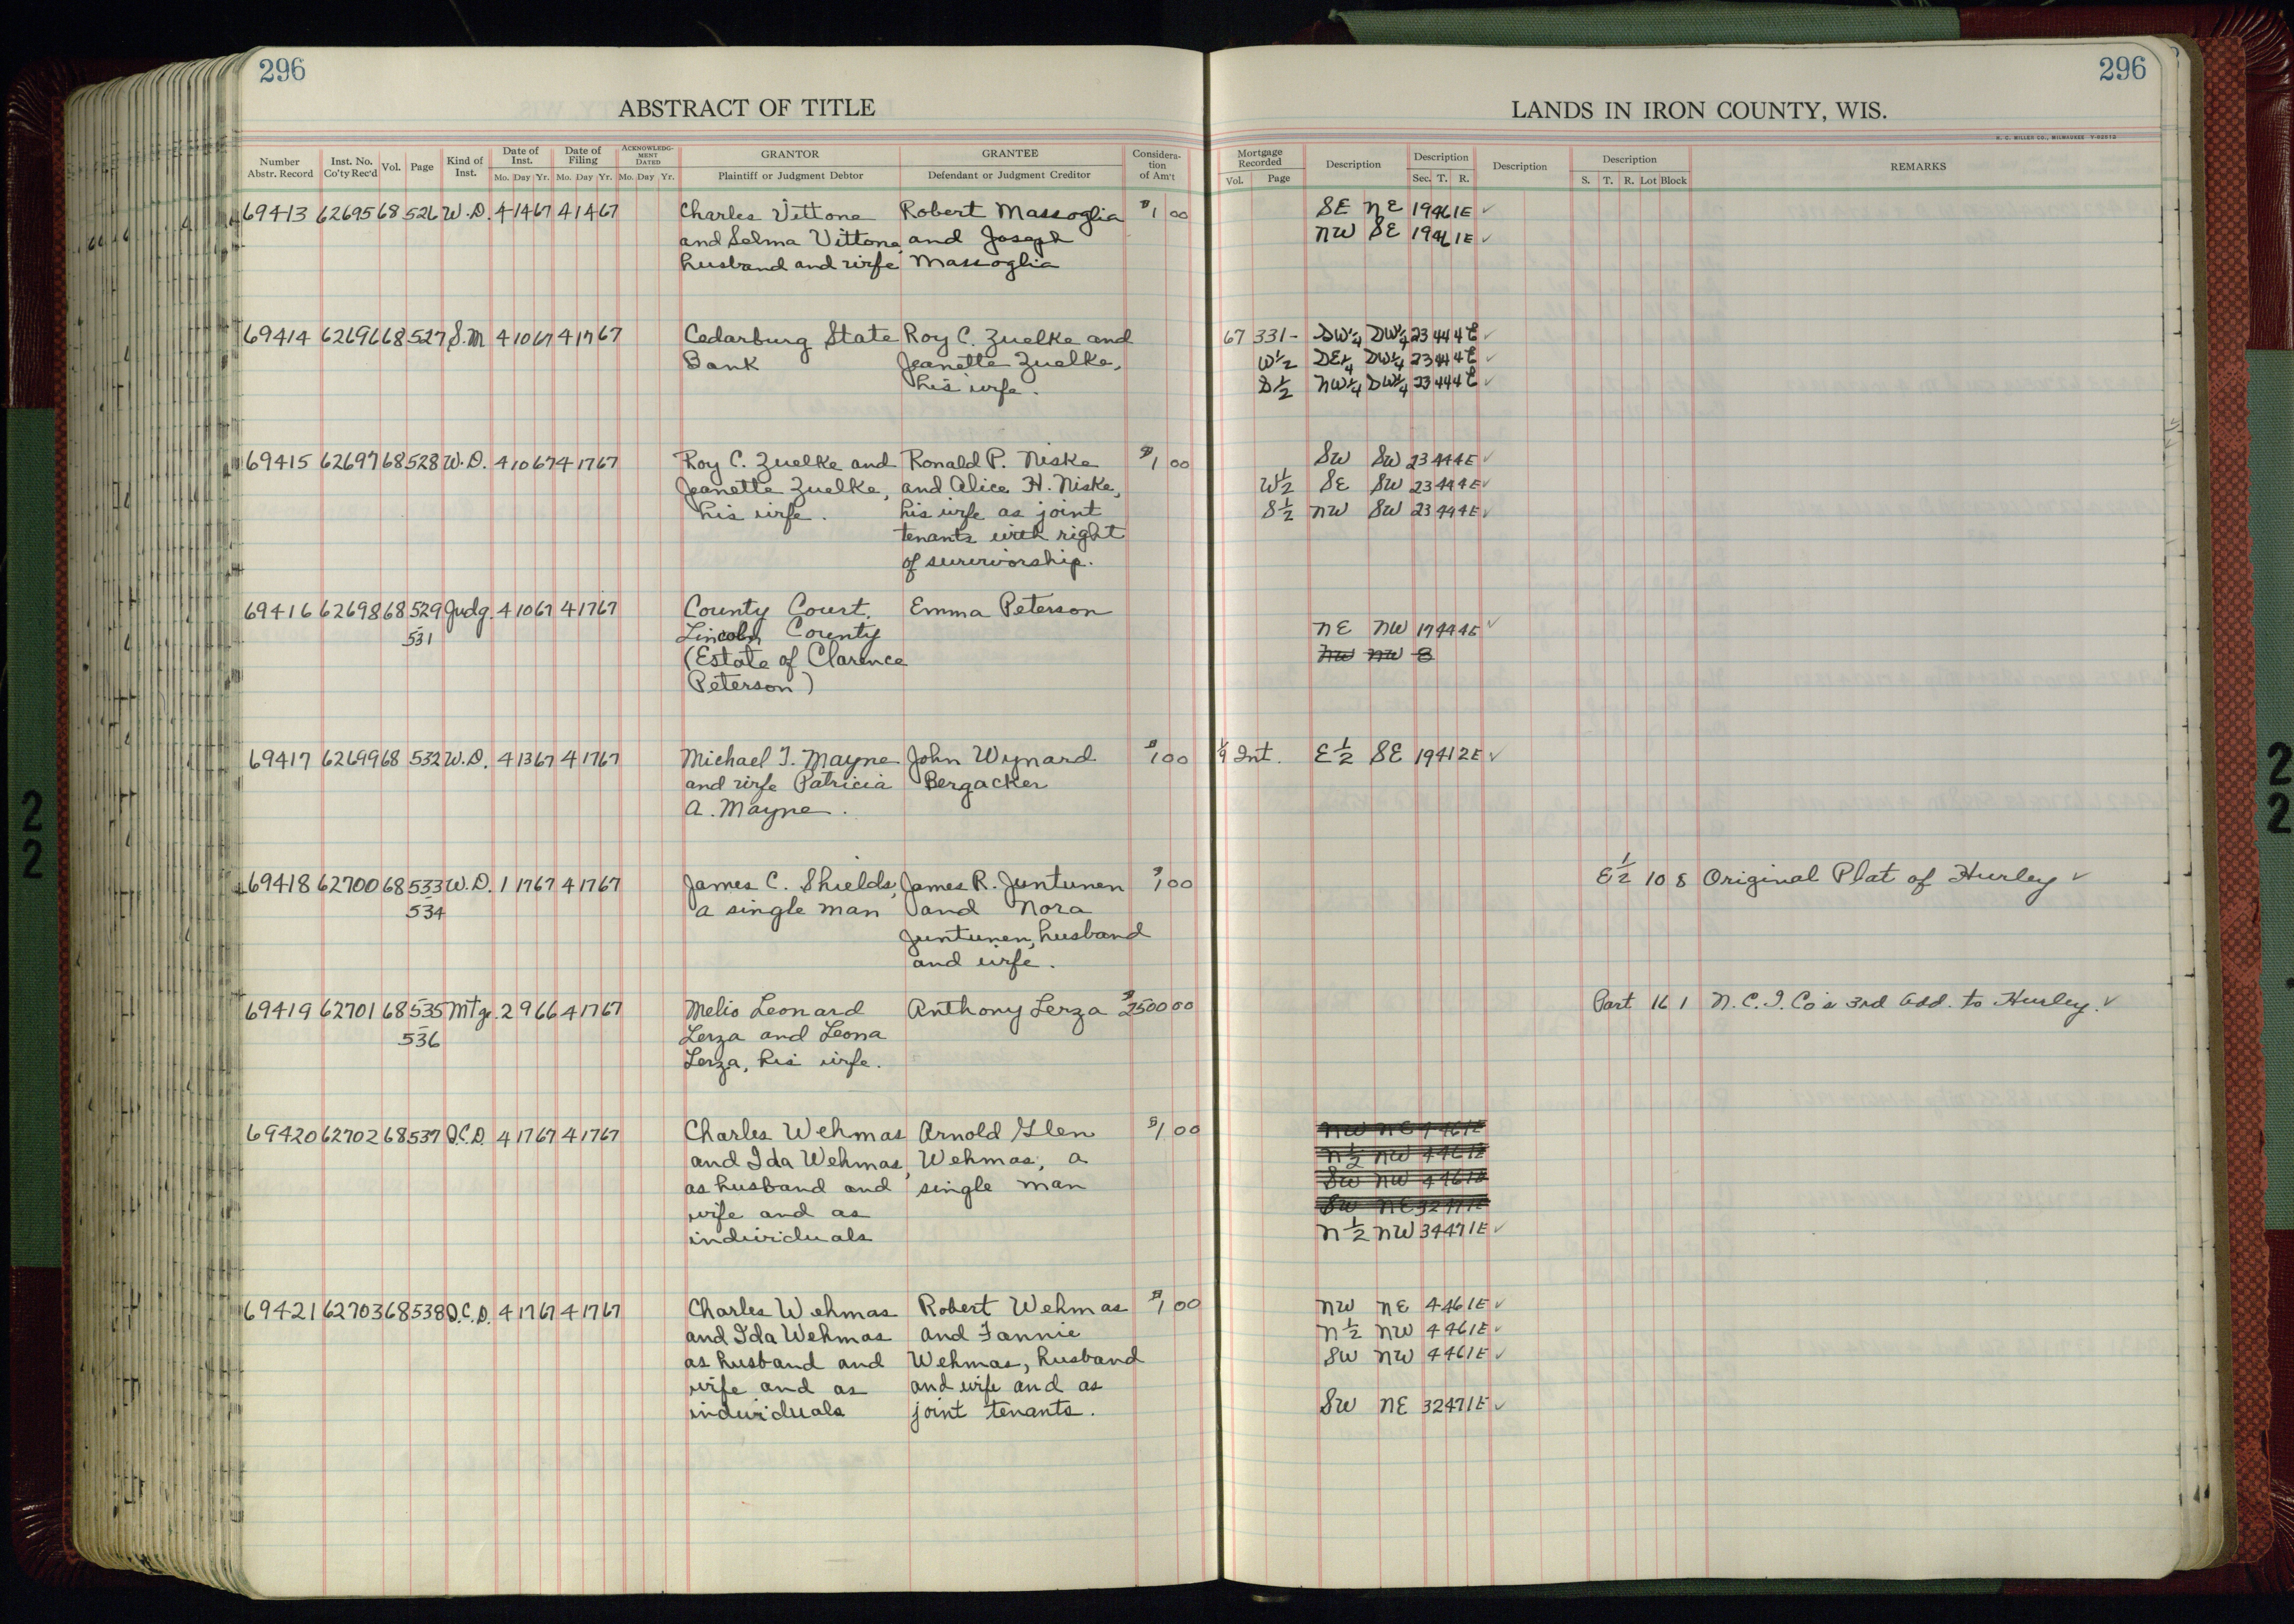 296
ABSTRACT OF TITLE
Number Abstr. Record
Inst. No. Co'ty Rec'd
Vol.
Page
Kind of Inst.
Date of Inst.
Mo. Day Yr.
Date of Filing
Mo. Day Yr.
ACKNOWLEDG-MENT DATED
Mo. Day Yr.
GRANTOR
Plaintiff or Judgment Debtor
GRANTEE
Defendant or Judgment Creditor
Considera-tion of Am't
69413 62695 68 526 W.D. 4 14 67 4 14 67 Charles Vittone Robert Massoglia $1 00
and Selma Vittone, and Joseph
husband and wife Massoglia
69414 62696 68 527 S.M 4 10 67 4 17 67 Cedarburg State Roy C. Zuelke and
Bank Jeanette Zuelke,
his wife.
69415 62697 68 528 W.D. 4 10 67 4 17 67 Roy C. Zuelke and Ronald P. Niske $1 00
Jeanette Zuelke, and Alice H. Niske,
his wife. his wife as joint
tenants with right
of survivorship.
69416 62698 68 529 Judg. 4 10 67 4 17 67 County Court Emma Peterson
531 Lincoln County
(Estate of Clarence
Peterson)
69417 62699 68 532 W.D. 4 13 67 4 17 67 Michael T. Mayne John Wynard $1 00
and wife Patricia Bergacker
A. Mayne.
69418 62700 68 533 W.D. 1 17 67 4 17 67 James C. Shields, James R. Juntunen $1 00
534 a single man and Nora
Juntunen, husband
and wife.
69419 62701 68 535 Mtge. 2 9 66 4 17 67 Melio Leonard Anthony Lerza $2500 00
536 Lerza and Leona
Lerza, his wife.
69420 62702 68 537 Q.C.D. 4 17 67 4 17 67 Charles Wehmas Arnold Glen $1 00
and Ida Wehmas, Wehmas, a
as husband and single man
wife and as
individuals
69421 62703 68 538 Q.C.D. 4 17 67 4 17 67 Charles Wehmas Robert Wehmas $1 00
and Ida Wehmas and Fannie
as husband and Wehmas, husband
wife and as and wife and as
individuals joint tenants.
296
LANDS IN IRON COUNTY, WIS.
H. C. MILLER CO., MILWAUKEE
Mortgage Recorded
Vol. Page
Description
Description
Sec. T. R.
Description
Description
S. T. R. Lot Block
REMARKS
SE NE 19 46 1E ✓
NW SE 19 46 1E ✓
67 331- SW¼ SW¼ 23 44 4E ✓
W½ SE¼ SW¼ 23 44 4E ✓
S½ NW¼ SW¼ 23 44 4E ✓
SW SW 23 44 4E ✓
W½ SE SW 23 44 4E ✓
S½ NW SW 23 44 4E ✓
NE NW 17 44 4E ✓
NW NW 8
Int. E½ SE 19 41 2E ✓
E½ 10 8 Original Plat of Hurley ✓
Part 16 1 N.C.I. Co's 3rd Add. to Hurley. ✓
NW NE 4 46 1E
N½ NW 4 46 1E
SW NW 4 46 1E
SW NE 32 47 1E
N½ NW 34 47 1E ✓
NW NE 4 46 1E ✓
N½ NW 4 46 1E ✓
SW NW 4 46 1E ✓
SW NE 32 47 1E ✓
22
22